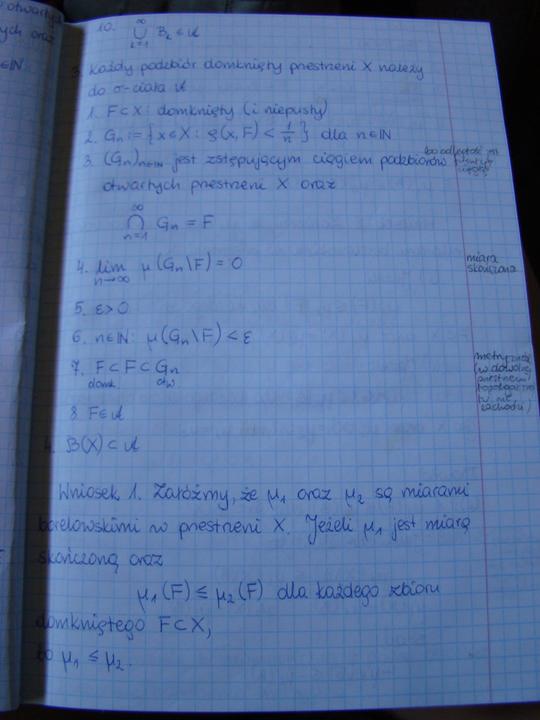 otwartych
ych oraz
∈ℕ
10. ⋃_{k=1}^{∞} B_k ∈ 𝒜
3. Każdy podzbiór domknięty przestrzeni X należy
do σ-ciała 𝒜
1. F⊂X: domknięty (i niepusty)
2. G_n := {x∈X: ϱ(x,F) < 1/n} dla n∈ℕ
3. (G_n)_{n∈ℕ} jest zstępującym ciągiem podzbiorów
otwartych przestrzeni X oraz
bo odległość jest
ciągła
⋂_{n=1}^{∞} G_n = F
4. lim_{n→∞} μ(G_n\F) = 0
miara
skończona
5. ε>0
6. n∈ℕ: μ(G_n\F) < ε
7. F⊂F⊂G_n
domk. otw
metryczna
(w dowolnej
przestrzeni
topologicznej
to nie
zachodzi)
8. F∈𝒜
4. B(X)⊂𝒜
Wniosek 1. Załóżmy, że μ₁ oraz μ₂ są miarami
borelowskimi w przestrzeni X. Jeżeli μ₁ jest miarą
skończoną oraz
μ₁(F) ≤ μ₂(F) dla każdego zbioru
domkniętego F⊂X,
to μ₁ ≤ μ₂.